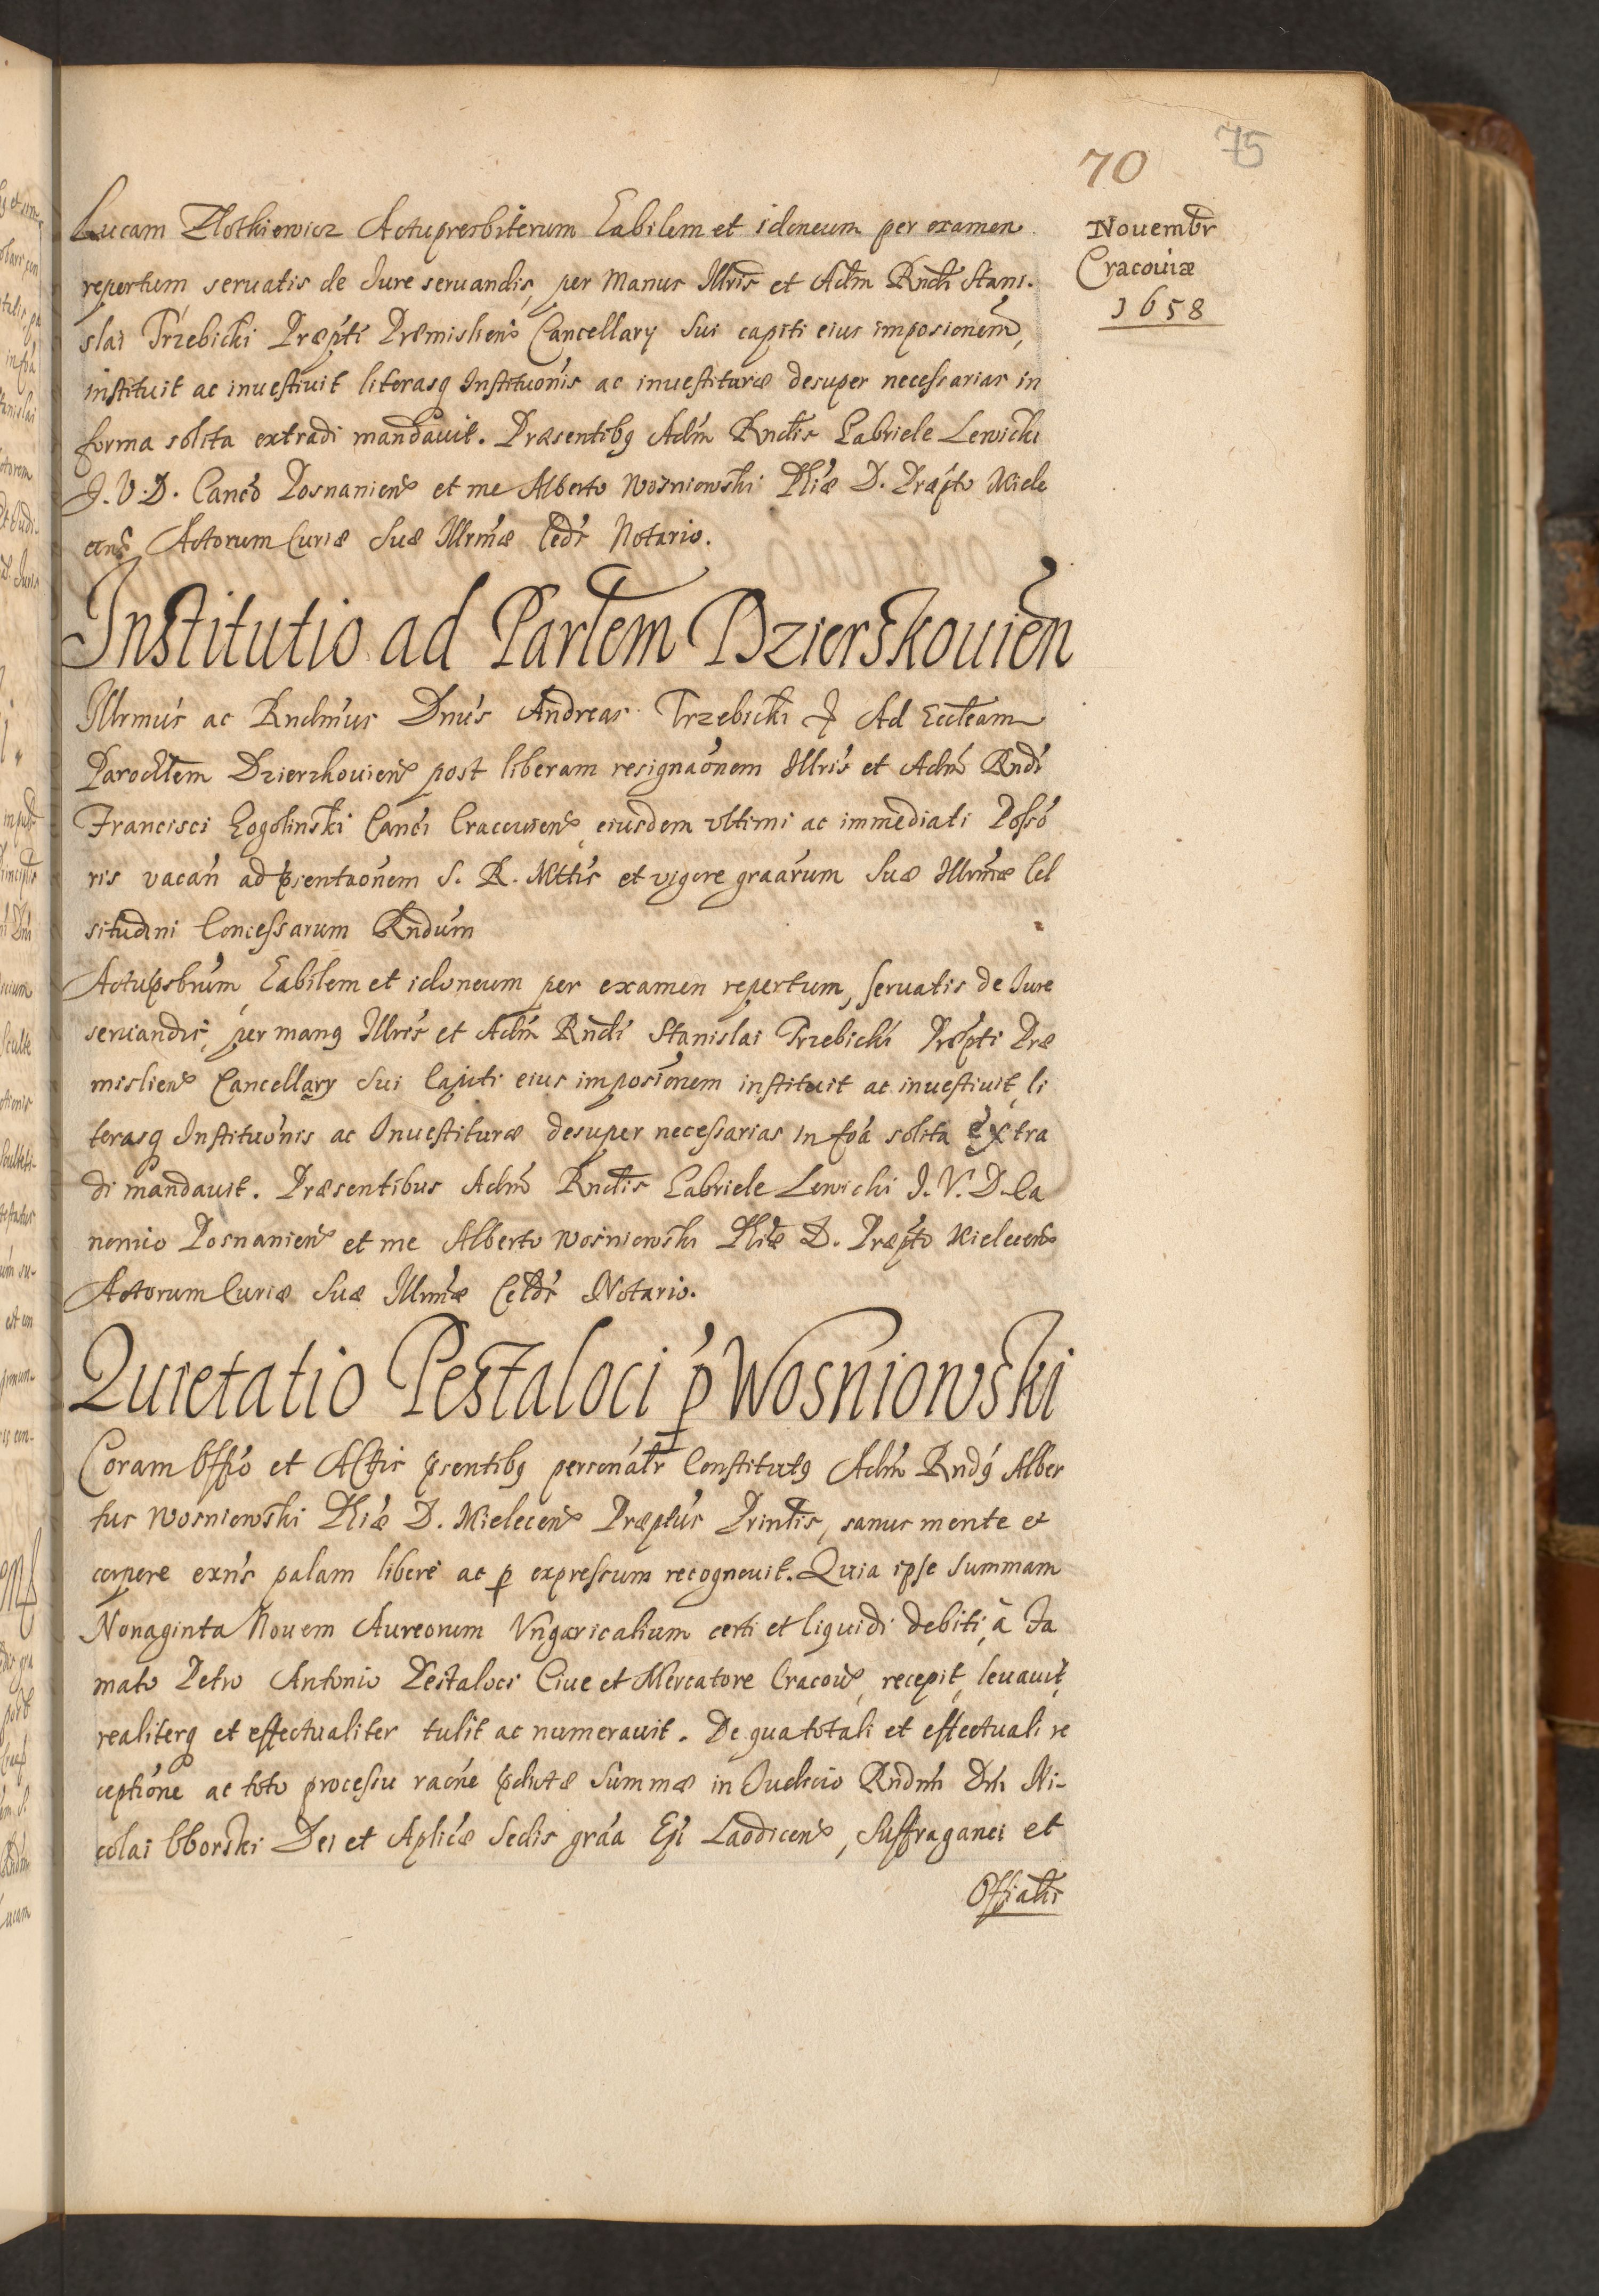 75
70
Novembr
Cracoviæ
1658
Lucam Zlotkiewicz Actupresbiterum habilem et idoneum per examen
repertum servatis de Iure servandis, per Manus Illris et Adm Rndi Stani-
slai Trzebicki Præpti Præmisliens Cancellary Sui capiti eius imposionem,
instituit ac investivit literasq Instituonis ac investituræ desuper necessarias in
forma solita extradi mandavit. Præsentibq Adm Rndis Gabriele Lewicki
J. V. D. Canco Posnaniens et me Alberto Wosniowski Phiæ D. Præpto Miele
cens Actorum Curiæ Suæ Illrmæ Cedis Notario.
Institutio ad Partem Dzierskovien
Illrmus ac Rndmus Dnus Andreas Trzebicki Ad Eccleam
Parochlem Dzierzkoviens post liberam resignaonem Illris et Adm Rndi
Francisci Rogolinski Canci Cracoviens, eiusdem ultimi ac immediati Posso
ris vacan ad psentaonem S. R. Mttis et vigore graarum Suæ Illrmæ Cel
situdini Concessarum Rndum
Actupsbrum habilem et idoneum per examen repertum, servatis de Iure
servandis, per manq Illris et Adm Rndi Stanislai Trzebicki Præpti Præ
misliens Cancellary Sui Capiti eius imposionem instituit ac investivit, li
terasq Instituonis ac Investituræ desuper necessarias in foa solita extra
di mandavit. Præsentibus Adm Rndis Gabriele Lewicki J. V. D. Ca
nonico Posnaniens et me Alberto Wosniowski Phiæ D. Præpto Mielecens
Actorum Curiæ Suæ Illrmæ Celdis Notario.
Quietatio Pestaloci p Wosniowski
Coram Offio et Actis psentibq personalr Constitutq Adm Rndq Alber
tus Wosniowski Phiæ D. Mielecens Præptus Printis, sanus mente et
corpore exns palam libere ac p expressum recognovit. Quia ipse Summam
Nonaginta Novem Aureorum Ungaricalium certi et liquidi debiti, à Fa
mato Petro Antonio Pestaloci Cive et Mercatore Cracovs, recepit, levavit,
realiterq et effectualiter tulit ac numeravit. De qua totali et effectuali re
ceptione ac toto processu raone pdictæ Summæ in Iudicio Rndmi Dni Ni-
colai Oborski Dei et Aplicæ Sedis graa Epi Laodicens, Suffraganei et
Offialis